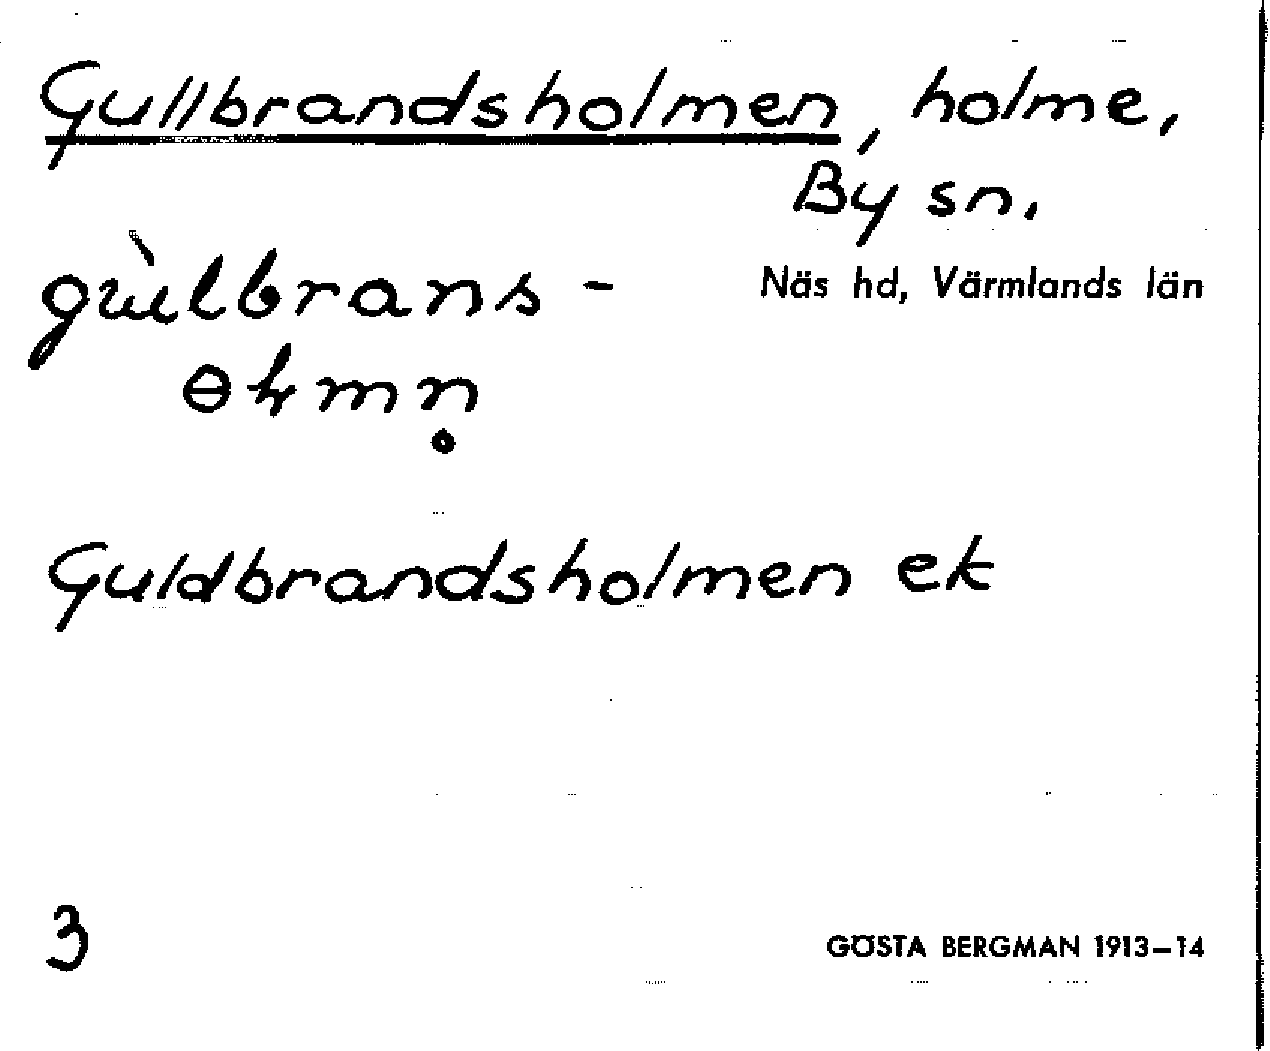 Gullbrandsholmen, holme,
By sn.
Näs hd, Värmlands län
gùlbrans-
ɵɽmn̥
Guldbrandsholmen ek
3
GÖSTA BERGMAN 1913–14